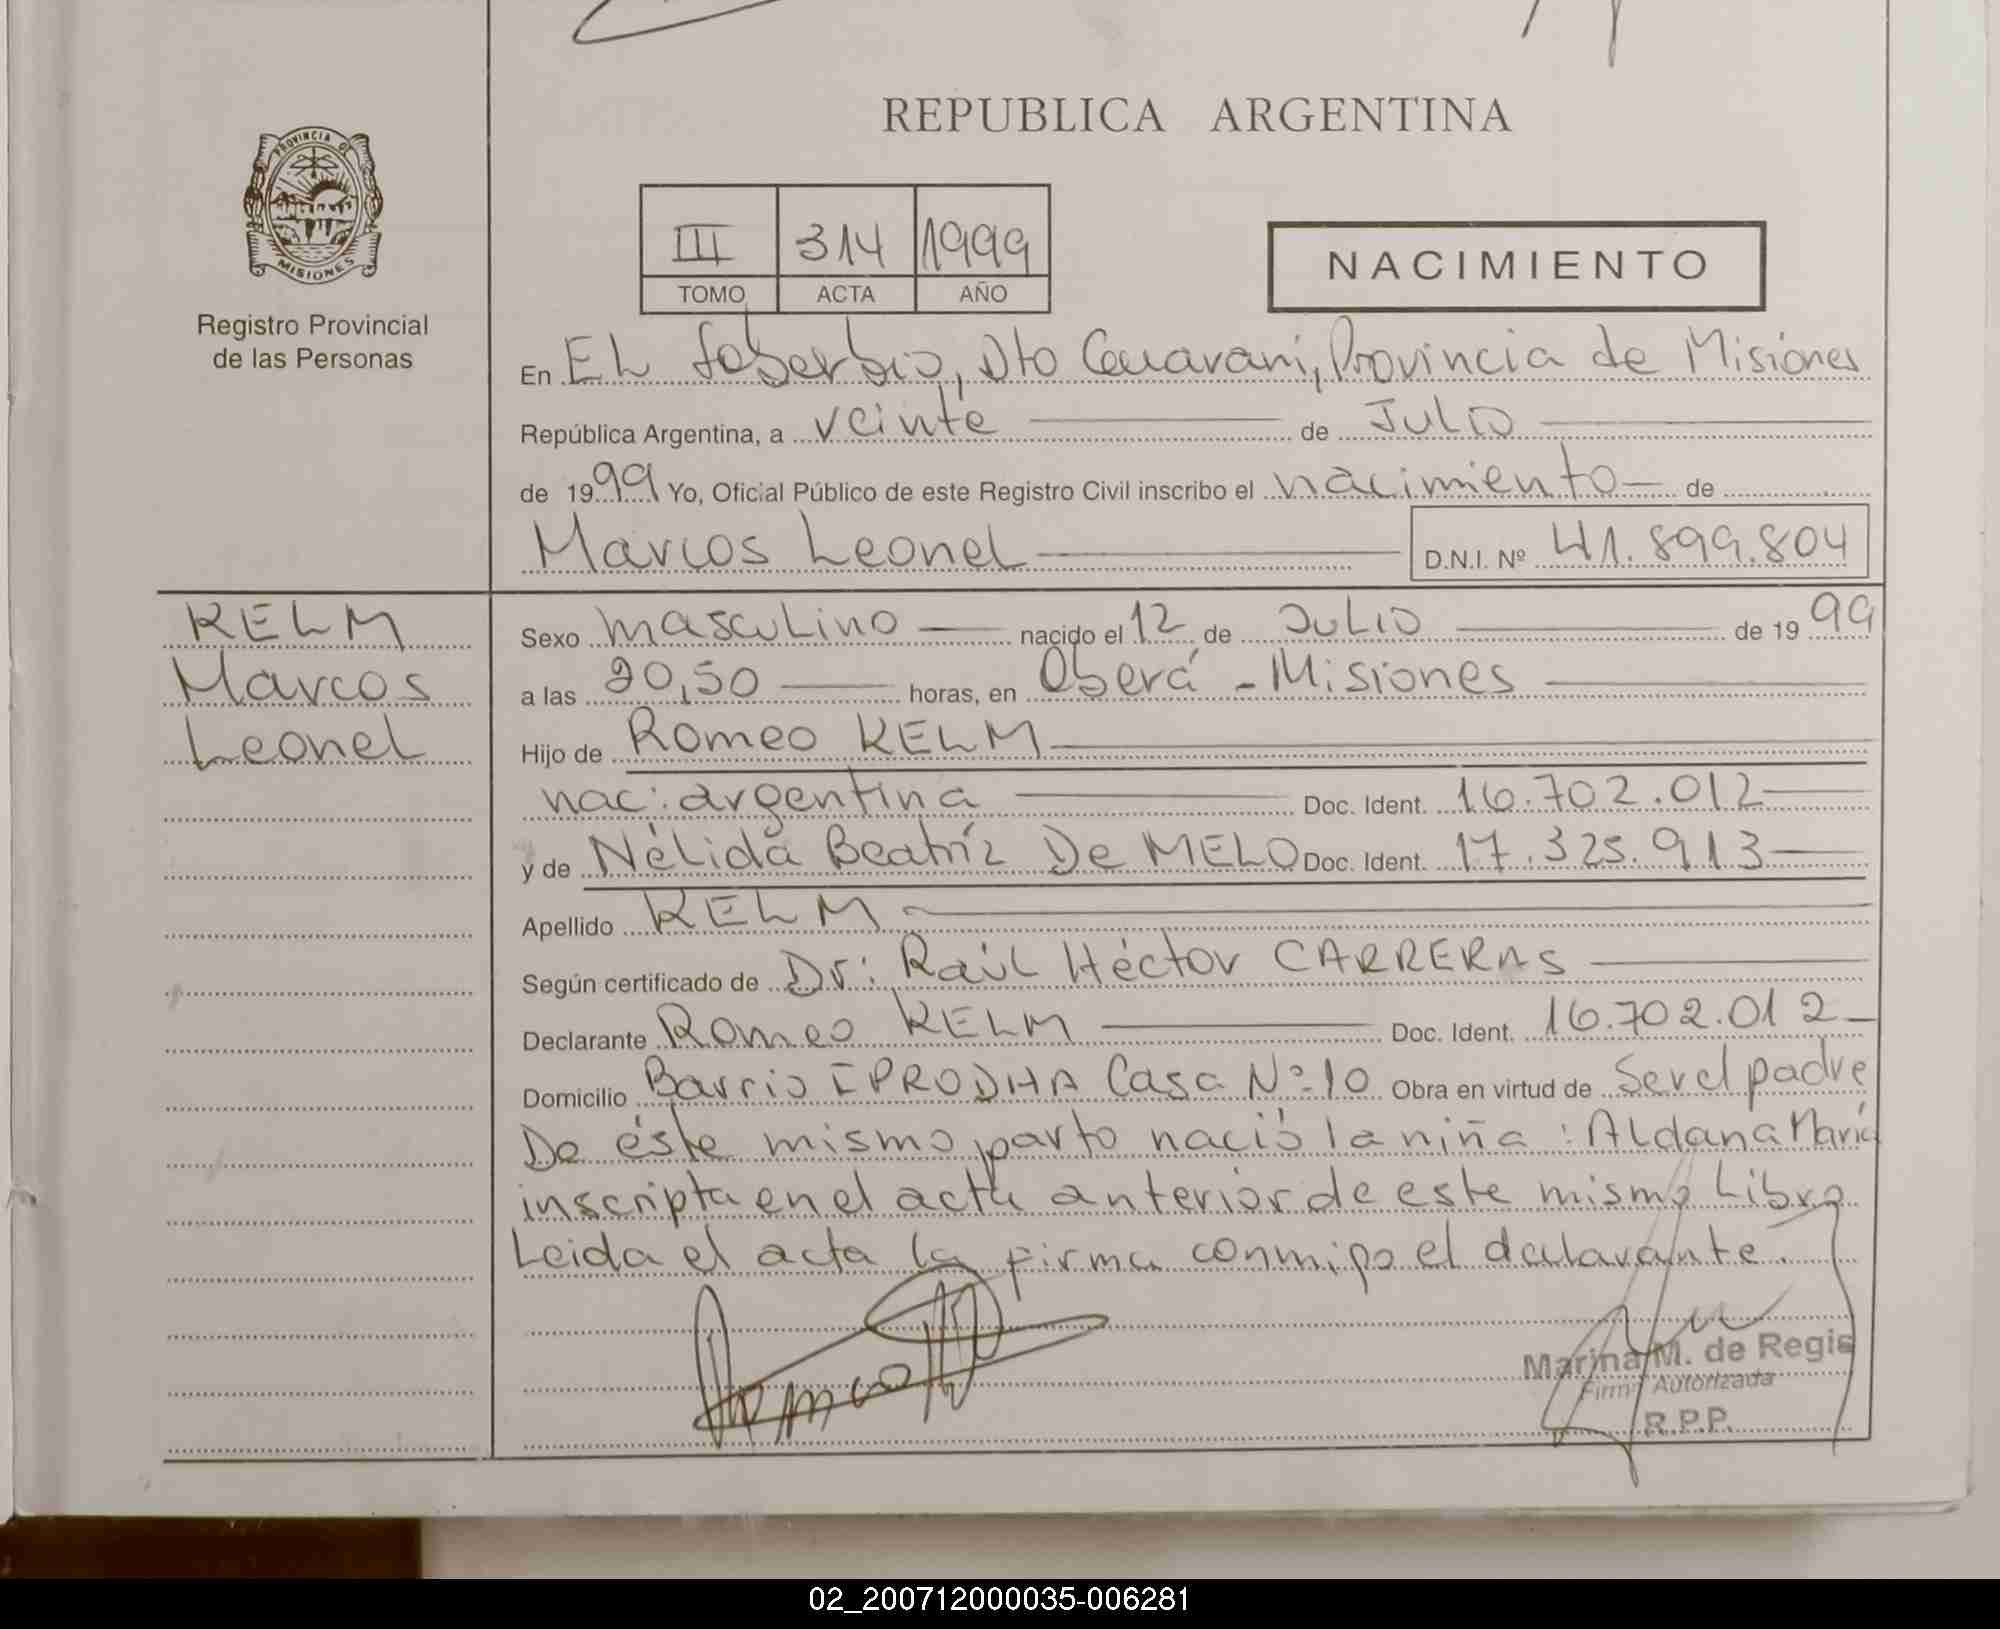 REPUBLICA ARGENTINA
PROVINCIA DE
MISIONES
Registro Provincial
de las Personas
III 314 1999
TOMO ACTA AÑO
NACIMIENTO
En EL Soberbio, Dto Guaraní, Provincia de Misiones
República Argentina, a veinte de Julio
de 1999 Yo, Oficial Público de este Registro Civil inscribo el nacimiento de
Marcos Leonel D.N.I. Nº 41.899.804
KELM
Marcos
Leonel
Sexo masculino nacido el 12 de Julio de 1999
a las 20,50 horas, en Oberá - Misiones
Hijo de Romeo KELM
nac: argentina Doc. Ident. 16.702.012
y de Nélida Beatríz De MELO Doc. Ident. 17.325.913
Apellido KELM
Según certificado de Dr: Raúl Héctor CARRERAS
Declarante Romeo KELM Doc. Ident. 16.702.012
Domicilio Barrio IPRODHA Casa Nº 10 Obra en virtud de Ser el padre
De éste mismo parto nació la niña: Aldana María
inscripta en el acta anterior de este mismo Libro
Leida el acta la firma conmigo el declarante.
Marina M. de Regis
Firma Autorizada
R.P.P.
02_200712000035-006281